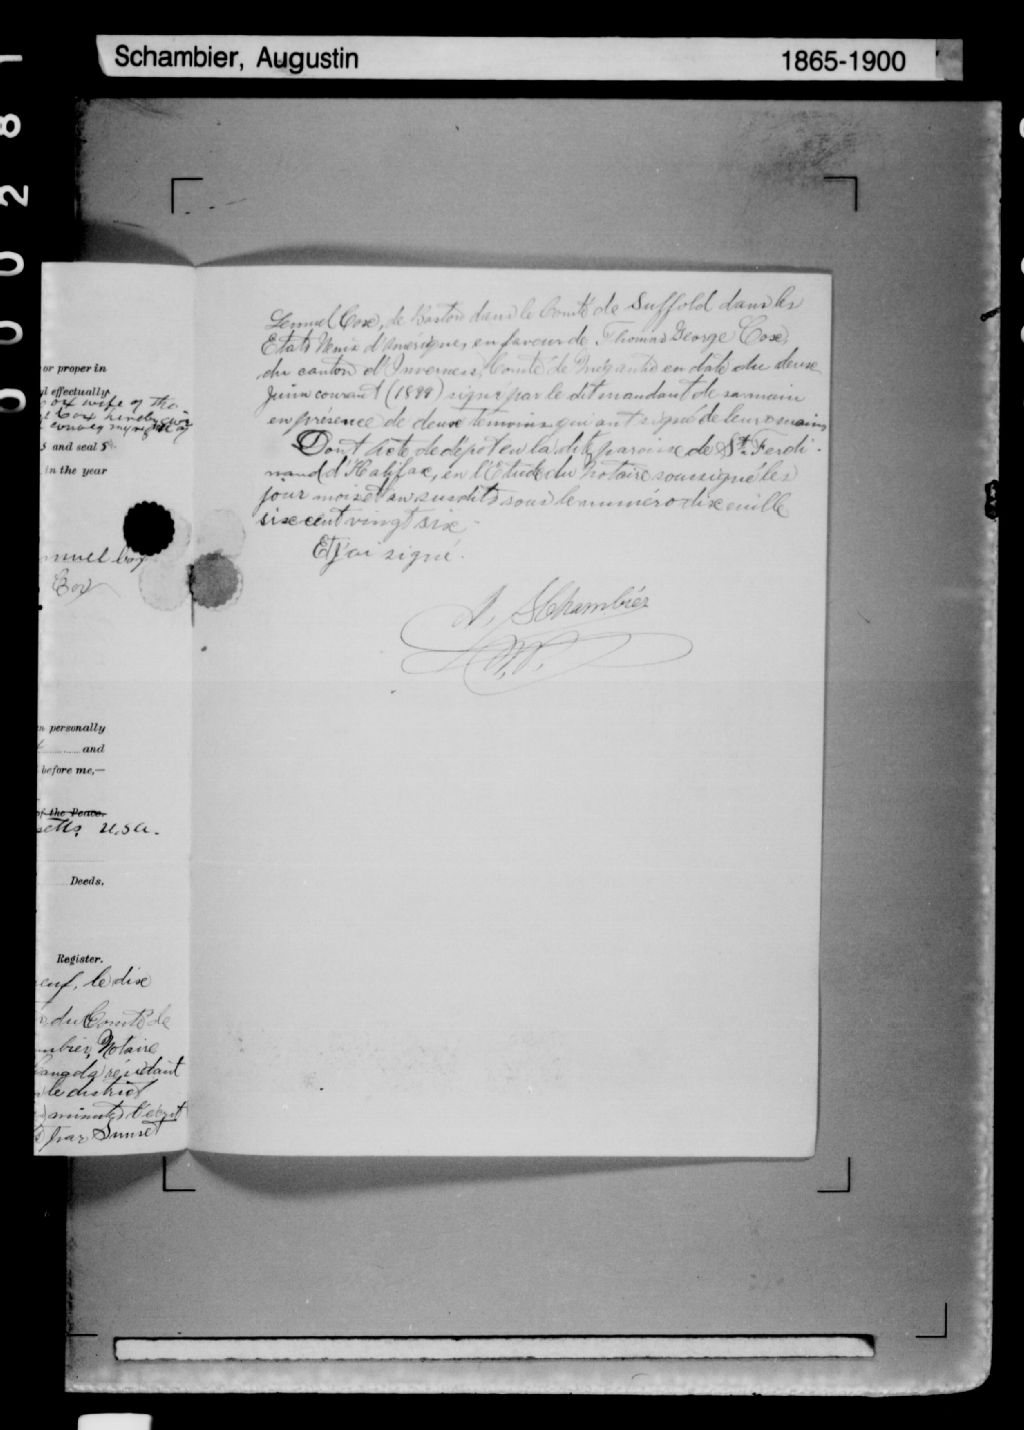 Schambier, Augustin 1865-1900
000281
Lemuel Coxe, de Boston dans le Comté de Suffold dans les
Etats Uenix d'Amérique, en faveur de Thomas George Coxe,
du canton d'Inverness, Comté de Mégantic en date du deuxe
Juin courant (1899) signé par le dit mandant de sa main
en présence de deuxe temoins qui ont signé de leurs mains
Dont Acte de dépot en la dite paroisse de St. Ferdi-
nand d'Halifax, en l'Etude du Notaire soussigné les
jour mois et an susdits sous le numéro dixe mille
sixe cent vingt sixe.
Et j'ai signé.
A. SChambier
N.P.
or proper in
d effectually
ox wife of the
Cox hereby
convey my right
s and seal s
in the year
muel Cox
Cox
n personally
and
before me,—
of the Peace.
setts, U.S.A.
Deeds.
Register.
euf, le dixe
du Comté de
mbier, Notaire
Canada résidant
le district
minute
par Sunset